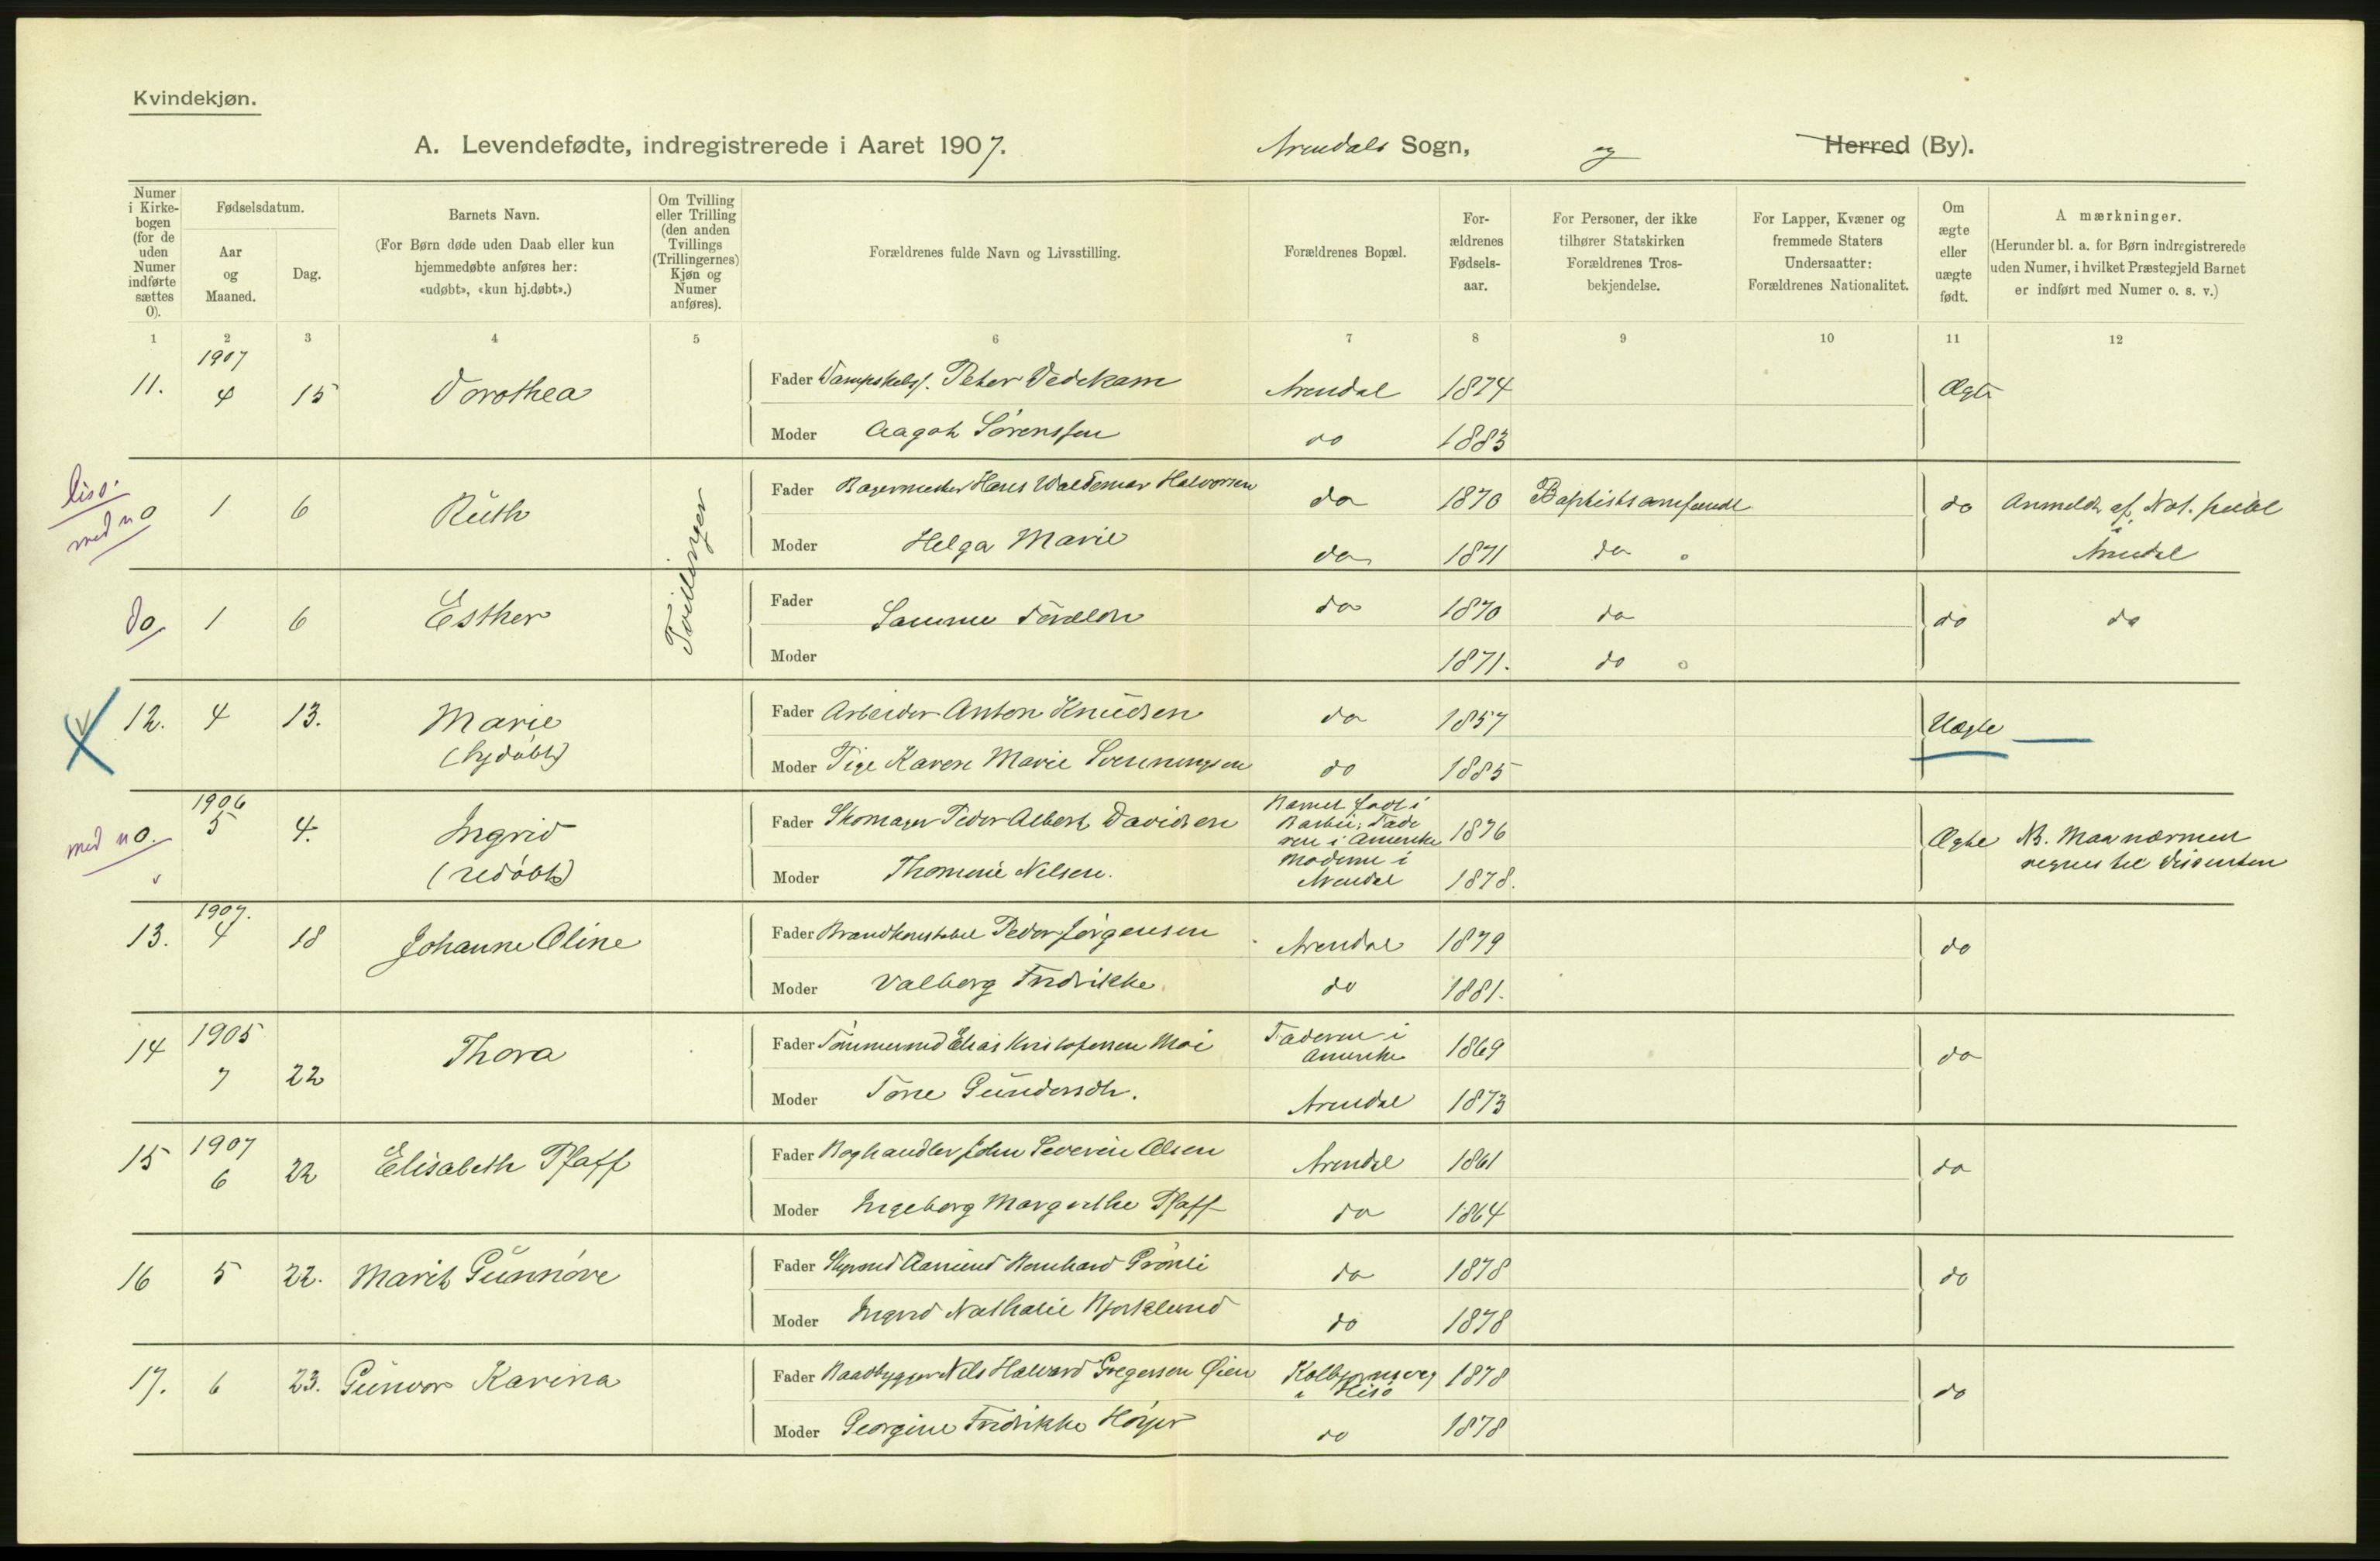 Kvindekjøn.
A. Levendefødte, indregistrerede i Aaret 1907. Arendals Sogn, og Herred (By).
Numer i Kirkebogen (for de uden Numer indførte sættes 0).
Fødselsdatum.
Aar og Maaned.
Dag.
Barnets Navn.
(For Børn døde uden Daab eller kun hjemmedøbte anføres her: «udøbt», «kun hj.døbt».)
Om Tvilling eller Trilling (den anden Tvillings (Trillingernes) Kjøn og Numer anføres).
Forældrenes fulde Navn og Livsstilling.
Forældrenes Bopæl.
Forældrenes Fødselsaar.
For Personer, der ikke tilhører Statskirken Forældrenes Trosbekjendelse.
For Lapper, Kvæner og fremmede Staters Undersaatter: Forældrenes Nationalitet.
Om ægte eller uægte født.
A mærkninger.
(Herunder bl. a. for Børn indregistrerede uden Numer, i hvilket Præstegjeld Barnet er indført med Numer o. s. v.)
1 2 3 4 5 6 7 8 9 10 11 12
1907
11. 4 15 Dorothea Fader Peter Dedekam Arendal 1874 Ægte
Moder Aagoth Sørenssen do 1883
diss. med no 1 6 Ruth Tvillinger Fader Bagermester Hans Waldemar Halvorsen do 1870 Baptistsamfundet do Anmeldt af Not. publ. i Arendal
Moder Helga Marie do 1871 do o
do 1 6 Esther Fader Samme Foreldre do 1870 do do do
Moder 1871. do o
12. 4 13. Marie (hjdøbt) Fader Arbeider Anton Knudsen do 1857 Uægte
Moder Pige Karen Marie Svenningsen do 1885
1906
med no. 5 4. Ingrid (udøbt) Fader Skomager Peder Albert Davidsen Barnet født i Barbu; Faderen i Amerika 1876 Ægte NB. Maa nærmest regnes til dissenter
Moder Thomine Nilsen. Moderen i Arendal 1878.
1907.
13. 4 18 Johanne Oline Fader Brandkonstabel Peder Jørgensen Arendal 1879 do
Moder Valborg Fredrikke do 1881.
14 1905 7 22 Thora Fader Tømmermd Elias Kristofersen Moi Faderen i Amerika 1869 do
Moder Tone Gundersdtr. Arendal 1873
15 1907 6 22 Elisabeth Pfaff Fader Boghandler John Severin Olsen Arendal 1861 do
Moder Ingeborg Margrethe Pfaff do 1864
16 5 22. Marit Gunnøve Fader Styrmd Aamund Bernhard Grønli do 1878 do
Moder Ingrid Nathalie Bjørklund do 1878
17. 6 23. Gunvor Karina Fader Baadbygger Nils Halvard Gregersen Øien Kolbjørnsvig i Hisø 1878 do
Moder Georgine Fredrikke Høyer do 1878